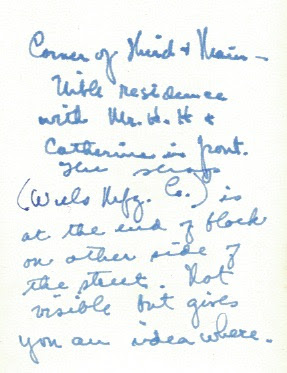 Corner of Third & Main -
residence
with Mr. H. H &
Catherine in front.
The shop
( Mfg. Co.) is
at the end of block
on other side of
the street. Not
visible but gives
you an idea where.